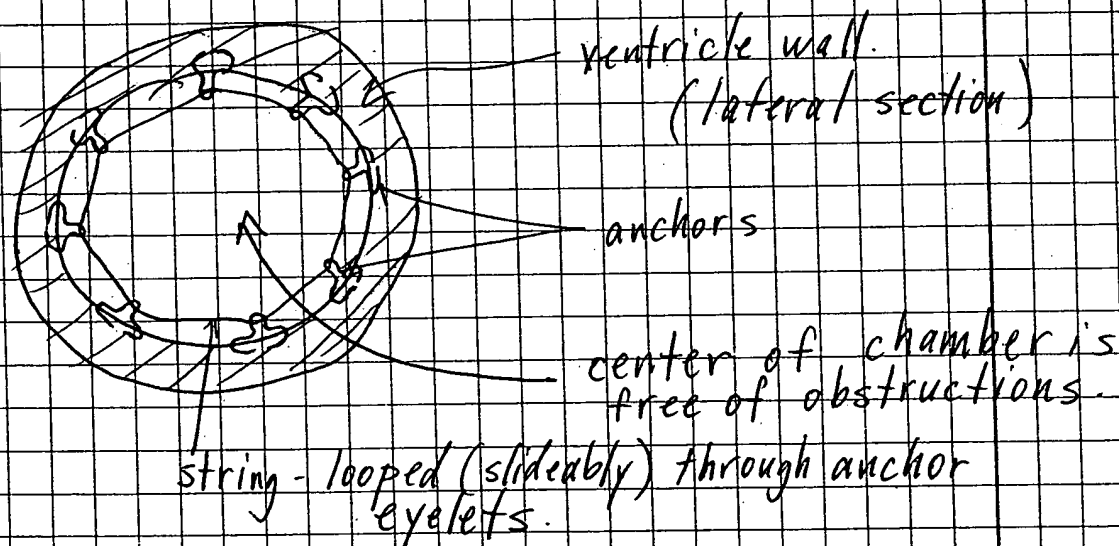 ventricle wall.
(lateral section)
anchors
center of chamber is
free of obstructions.
string - looped (slideably) through anchor
eyelets.